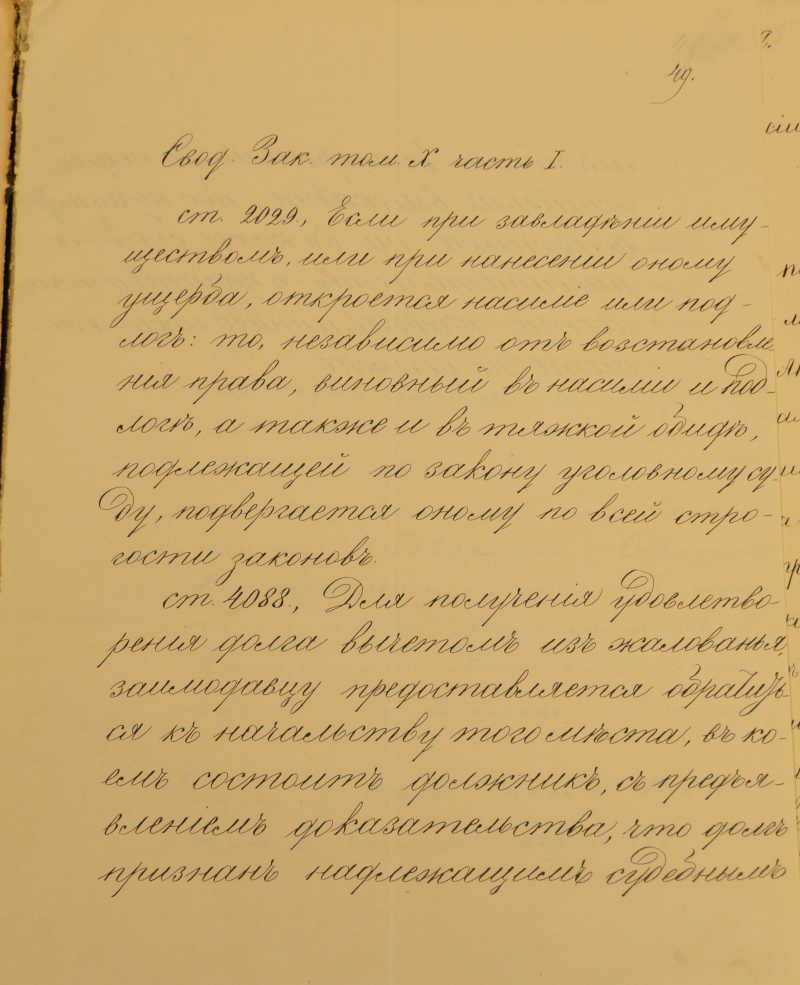 49.
Свод. Зак. том. X часть I.
ст. 2029, Если при завладѣніи иму-
ществомъ, или при нанесеніи оному
ущерба, откроется насиліе или под-
логъ: то, независимо отъ возстановле-
нія права, виновный въ насиліи и под-
логѣ, а также и въ тяжкой обидѣ,
подлежащей по закону уголовному су-
ду, подвергается оному по всей стро-
гости законовъ.
ст. 4088, Для полученія удовлетво-
ренія долга вычетомъ изъ жалованья,
заимодавцу предоставляется обратить-
ся къ начальству того мѣста, въ ко-
емъ состоитъ должникъ, съ предъя-
вленіемъ доказательства, что долгъ
признанъ надлежащимъ судебнымъ